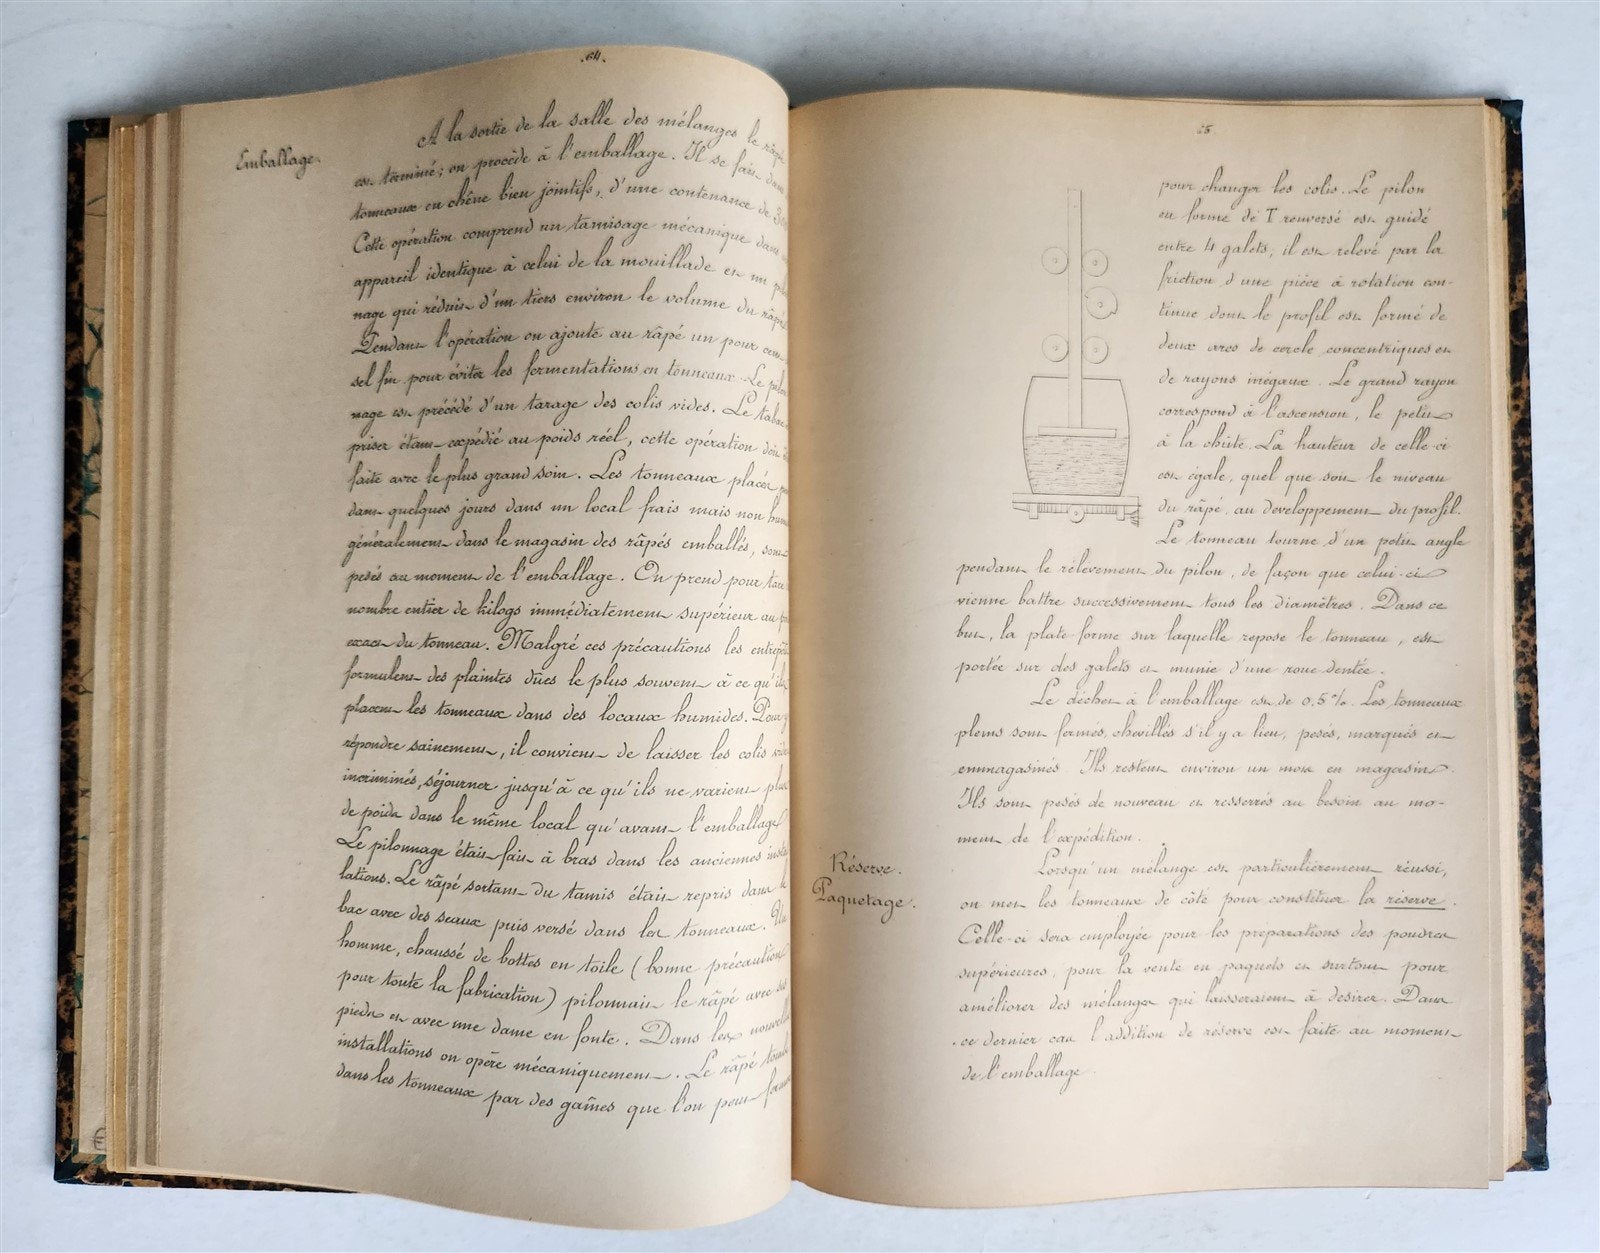 .64.
Emballage.
A la sortie de la salle des mélanges le râpé
est terminé; on procède à l'emballage. Il se fait dans
tonneaux en chêne bien jointifs, d'une contenance de
Cette opération comprend un tamisage mécanique dans
appareil identique à celui de la mouillade et un
nage qui réduit d'un tiers environ le volume du râpé
Pendant l'opération on ajoute au râpé un pour cent
sel fin pour éviter les fermentations en tonneaux. Le
nage est précédé d'un tarage des colis vides. Le tabac
priser étant expédié au poids réel, cette opération doit
faite avec le plus grand soin. Les tonneaux placés
dant quelques jours dans un local frais mais non
généralement dans le magasin des râpés emballés, sont
pesés au moment de l'emballage. On prend pour tare
nombre entier de kilogs immédiatement supérieur au
exact du tonneau. Malgré ces précautions les
formulent des plaintes dûes le plus souvent à ce qu'ils
placent les tonneaux dans des locaux humides. Pour y
répondre sainement, il convient de laisser les colis
incriminés, séjourner jusqu'à ce qu'ils ne varient plus
de poids dans le même local qu'avant l'emballage
Le pilonnage était fait à bras dans les anciennes
lations. Le râpé sortant du tamis était repris dans le
bac avec des seaux puis versé dans les tonneaux. Un
homme, chaussé de bottes en toile (bonne précaution
pour toute la fabrication) pilonnait le râpé avec ses
pieds et avec une dame en fonte. Dans les nouvelles
installations on opère mécaniquement. Le râpé tombe
dans les tonneaux par des gaînes que l'on peut fermer
65.
pour changer les colis. Le pilon
en forme de T renversé est guidé
entre 4 galets, il est relevé par la
friction d'une pièce à rotation con-
tinue dont le profil est formé de
deux arcs de cercle concentriques et
de rayons inégaux. Le grand rayon
correspond à l'ascension, le petit
à la chute. La hauteur de celle-ci
est égale, quel que soit le niveau
du râpé, au développement du profil.
Le tonneau tourne d'un petit angle
pendant le relèvement du pilon, de façon que celui-ci
vienne battre successivement tous les diamètres. Dans ce
but, la plate-forme sur laquelle repose le tonneau, est
portée sur des galets et munie d'une roue dentée.
Le déchet à l'emballage est de 0,5%. Les tonneaux
pleins sont fermés, chevillés s'il y a lieu, pesés, marqués et
emmagasinés. Ils restent environ un mois en magasin.
Ils sont pesés de nouveau et resserrés au besoin au mo-
ment de l'expédition.
Réserve.
Paquetage.
Lorsqu'un mélange est particulièrement réussi,
on met les tonneaux de côté pour constituer la réserve.
Celle-ci sera employée pour les préparations des poudres
supérieures, pour la vente en paquets et surtout pour
améliorer des mélanges qui laisseraient à désirer. Dans
ce dernier cas l'addition de réserve est faite au moment
de l'emballage.